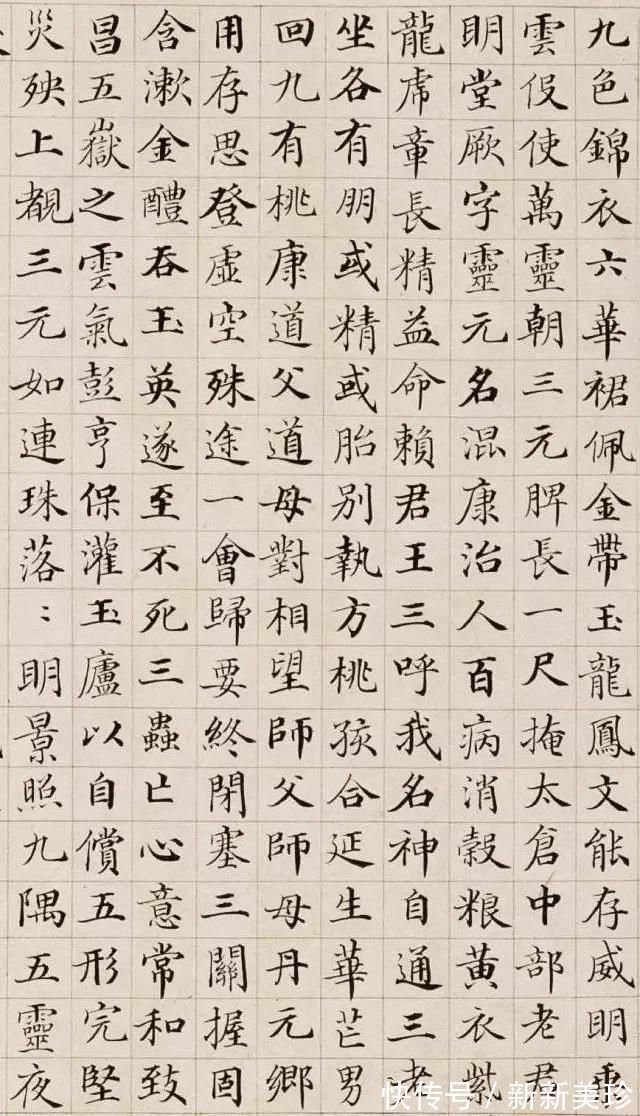 九色錦衣六華裙佩金帶玉龍鳳文能存威明乘
雲伇使萬靈朝三元脾長一尺掩太倉中部老君
明堂厥字靈元名混康治人百病消穀粮黃衣紫
龍虎章長精益命賴君王三呼我名神自通三老
坐各有朋或精或胎別執方桃孩合延生華芒男
回九有桃康道父道母對相望師父師母丹元鄉
用存思登虛空殊途一會歸要終閉塞三關握固
含漱金醴吞玉英遂至不死三蟲亡心意常和致
昌五嶽之雲氣彭亨保灌玉廬以自償五形完堅
災殃上覩三元如連珠落：明景照九隅五靈夜
快传号 / 新新美珍